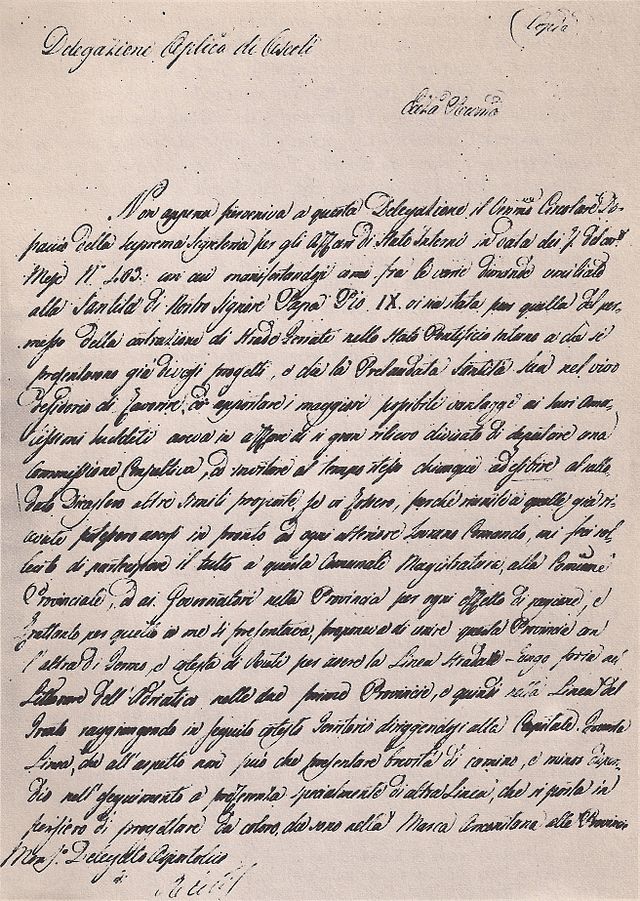 (Copia
Delegazione Aplica di Ascoli
Ecc̃za Rev̄ma
Non appena perveniva a questa Delegazione il Circolare Di-
spaccio della suprema Segreteria per gli Affari di Stato Interni in data dei 7. del
Mese N° 463. con cui manifestandosi come fra le varie dimande umiliate
alla Santità di Nostro Signore Papa Pio IX. vi sia stata pur quella del per-
messo della costruzione di Strade Ferrate nello Stato Pontificio intorno a che si
presentarono già diversi progetti, e che la Prelaudata Santità Sua nel vivo
desiderio di favorire, ed apportare i maggiori possibili vantaggi ai suoi Ama-
tissimi sudditi aveva in affare di sì gran rilievo divisato di deputare una
Commissione Consultiva, ed invitare al tempo stesso chiunque ad esibire al sullo-
dato Dicastero altre simili proposte, se vi fossero, perchè riunite a quelle già ri-
cevute potessero aversi in pronto ad ogni ulteriore Sovrano Comando, mi feci sol-
lecito di partecipare il tutto a questa Comunale Magistratura, alla Comm̃e
Provinciale, ed ai Governatori nella Provincia per ogni effetto di ragione, e
frattanto per quanto a me si presentava, proponeva di unire questa Provincia con
l'altra di Fermo, e cotesta di Rieti per avere la Linea Stradale lungo forse nel
Littorale dell'Adriatico nelle due prime Provincie, e quindi nella Linea del
Tronto raggiungendo in seguito cotesto Territorio dirigendosi alla Capitale.
Linea, che all'aspetto non può che presentare brevità di camino, e minor dispen-
dio nell'eseguimento a preferenza specialmente di altra Linea, che si porta in
pensiero di progettare da coloro, che sono nella Marca Anconitana alle Provincie
Mons.r Delegato Apostolico
di Rieti